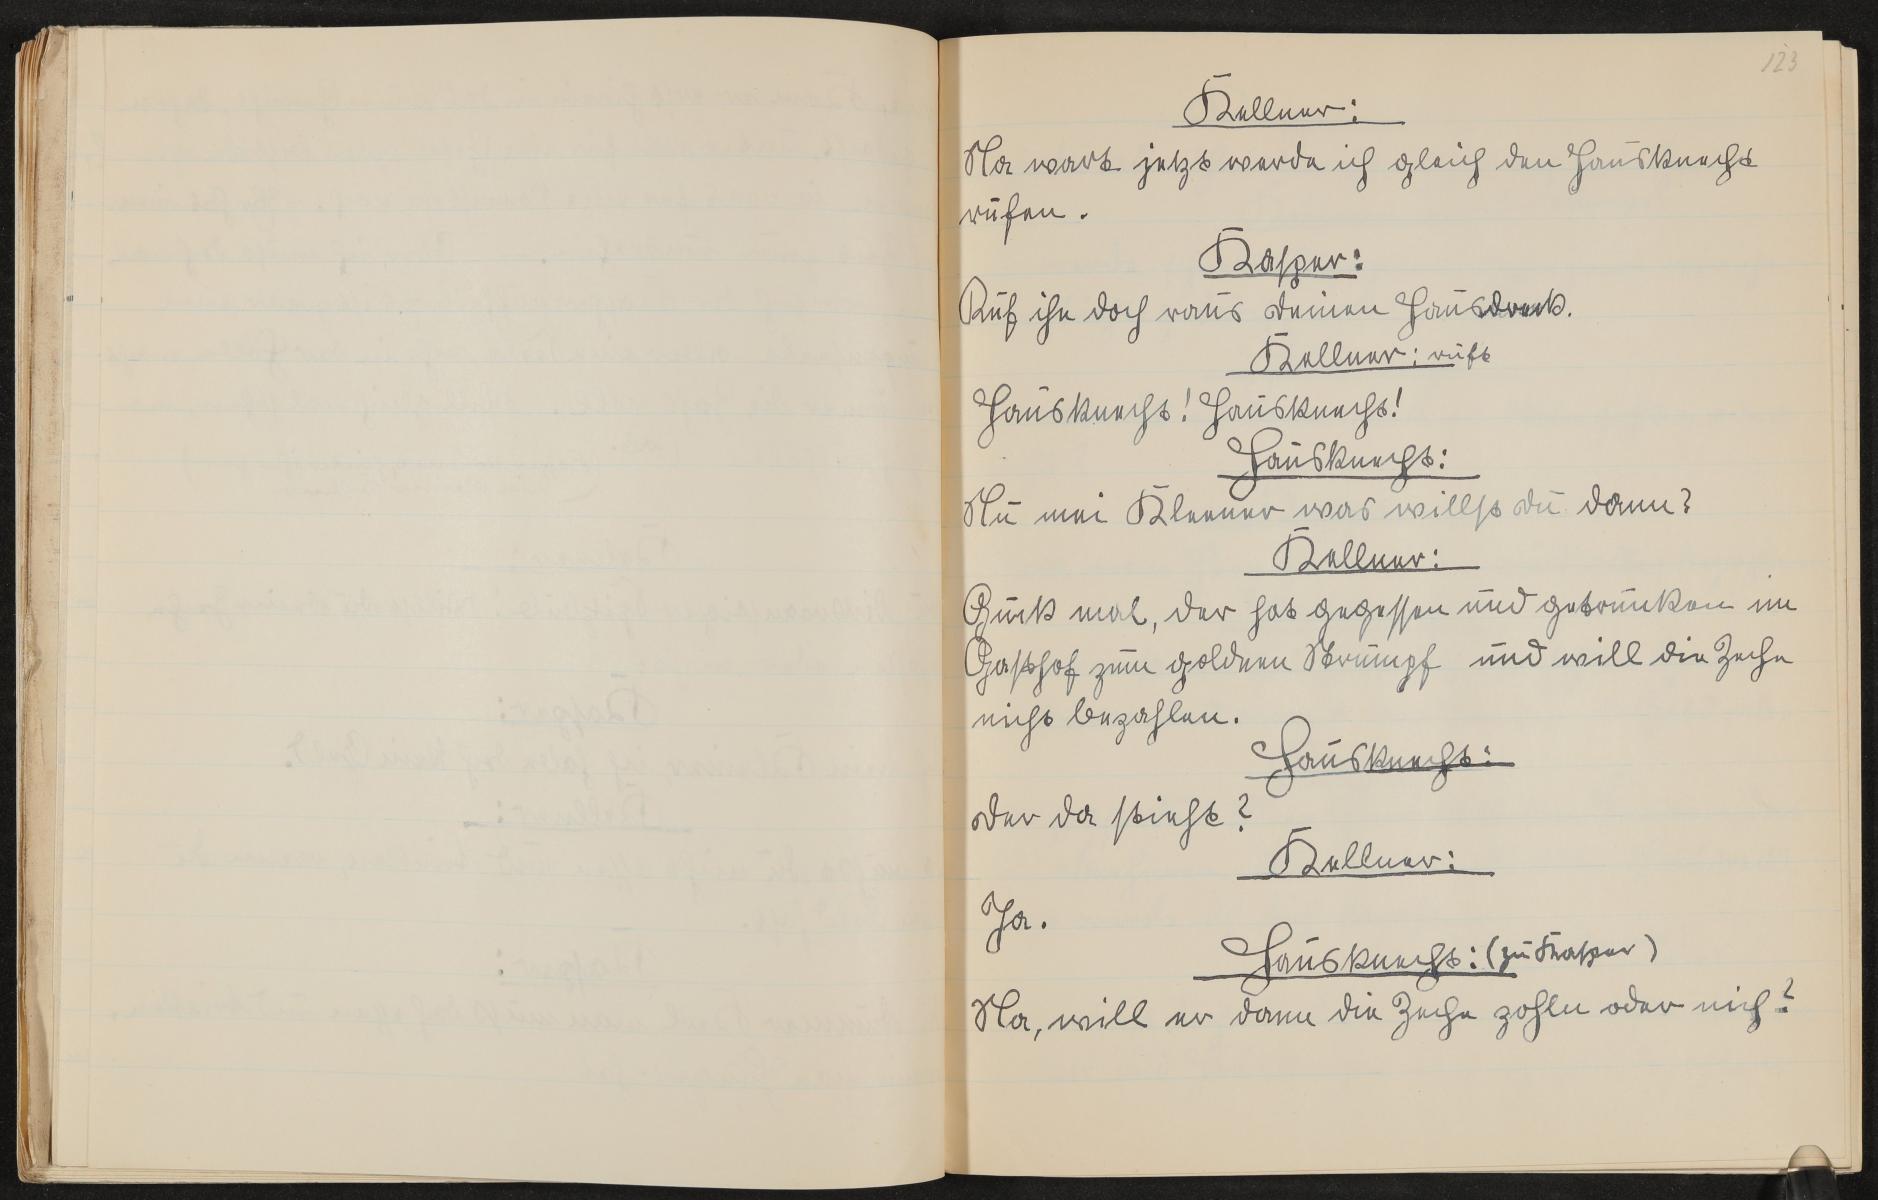 123
Kellner:
Na wart jetzt werde ich gleich den Hausknecht
rufen.
Kasper:
Ruf ihn doch raus deinen Hausdreck.
Kellner: ruft
Hausknecht! Hausknecht!
Hausknecht:
Nu mei Kleener was willst du dann?
Kellner:
Guck mal, der hat gegessen und getrunken im
Gasthof zum goldnen Strumpf und will die Zeche
nicht bezahlen.
Hausknecht:
Der da stieht?
Kellner:
Ja.
Hausknecht: (zu Kasper)
Na, will er dann die Zeche zohln oder nich?